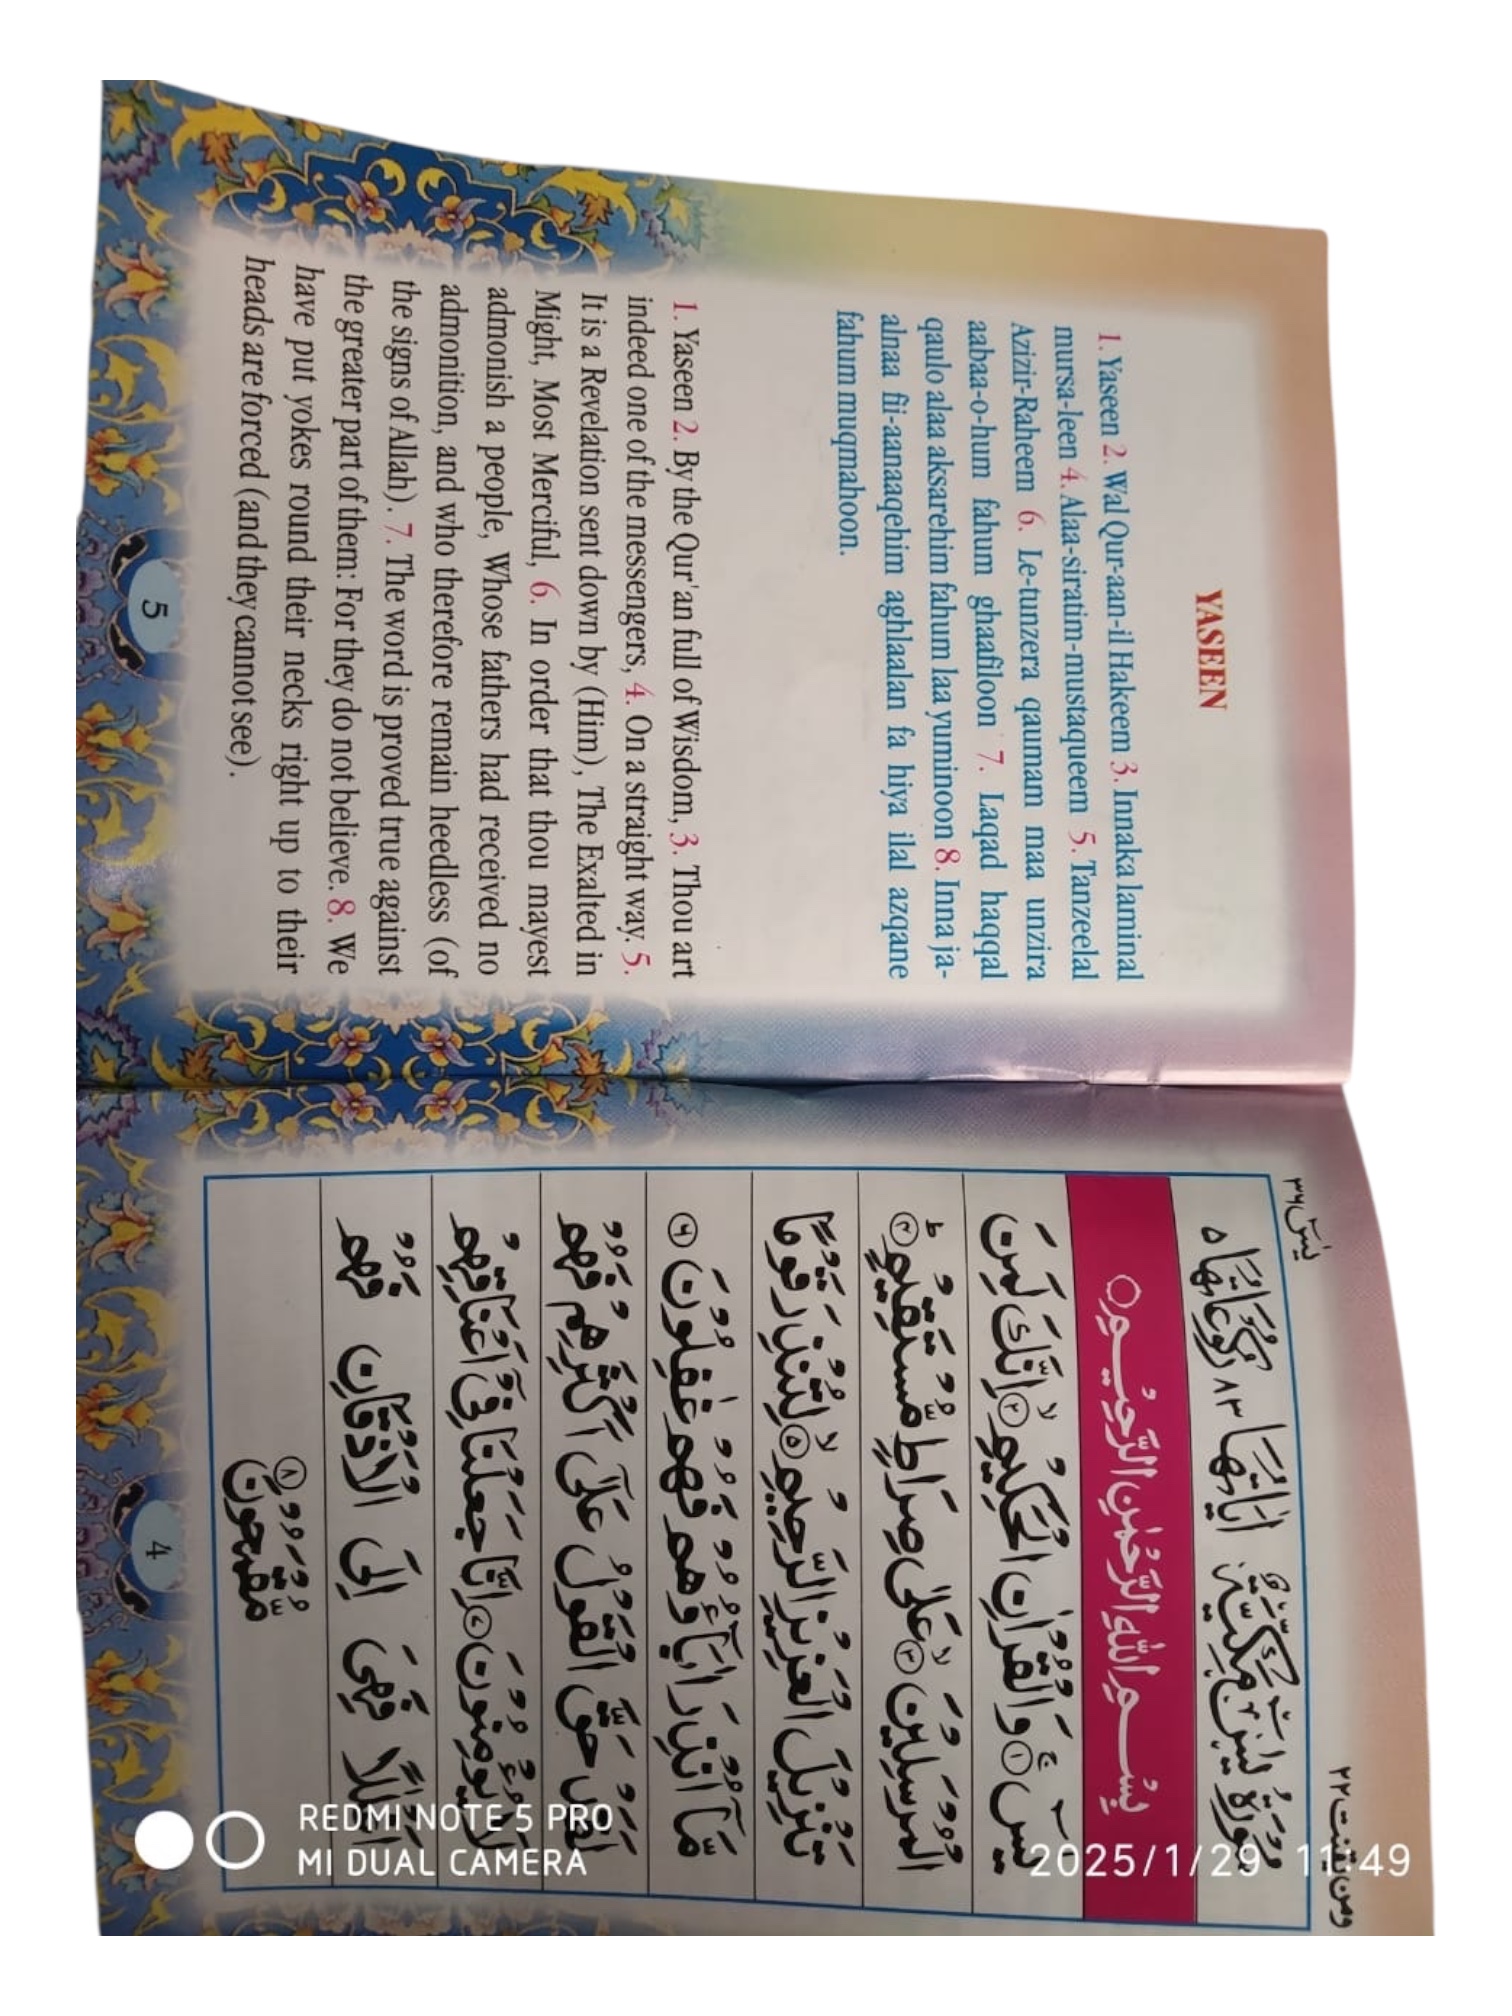 ومن یقنت ۲۲
یٰسٓ ۳۶
سُوْرَةُ یٰسٓ مَكِّیَّةٌ اٰیَاتُهَا ۸۳ رُكُوْعَاتُهَا ۵
بِسْمِ اللّٰهِ الرَّحْمٰنِ الرَّحِیْمِ
یٰسٓ ۚ ۝۱ وَالْقُرْاٰنِ الْحَكِیْمِ ۙ ۝۲ اِنَّكَ لَمِنَ
الْمُرْسَلِیْنَ ۙ ۝۳ عَلٰی صِرَاطٍ مُّسْتَقِیْمٍ ؕ ۝۴
تَنْزِیْلَ الْعَزِیْزِ الرَّحِیْمِ ۙ ۝۵ لِتُنْذِرَ قَوْمًا
مَّاۤ اُنْذِرَ اٰبَآؤُهُمْ فَهُمْ غٰفِلُوْنَ ۝۶
لَقَدْ حَقَّ الْقَوْلُ عَلٰۤی اَكْثَرِهِمْ فَهُمْ
لَا یُؤْمِنُوْنَ ۝۷ اِنَّا جَعَلْنَا فِیْۤ اَعْنَاقِهِمْ
اَغْلٰلًا فَهِیَ اِلَی الْاَذْقَانِ فَهُمْ
مُّقْمَحُوْنَ ۝۸
4
YASEEN
1. Yaseen 2. Wal Qur-aan-il Hakeem 3. Innaka laminal
mursa-leen 4. Alaa-siratim-mustaqueem 5. Tanzeelal
Azizir-Raheem 6. Le-tunzera qaumam maa unzira
aabaa-o-hum fahum ghaafiloon 7. Laqad haqqal
qaulo alaa aksarehim fahum laa yuminoon 8. Inna ja-
alnaa fii-aanaaqehim aghlaalan fa hiya ilal azqane
fahum muqmahoon.
1. Yaseen 2. By the Qur'an full of Wisdom, 3. Thou art
indeed one of the messengers, 4. On a straight way. 5.
It is a Revelation sent down by (Him), The Exalted in
Might, Most Merciful, 6. In order that thou mayest
admonish a people, Whose fathers had received no
admonition, and who therefore remain heedless (of
the signs of Allah). 7. The word is proved true against
the greater part of them: For they do not believe. 8. We
have put yokes round their necks right up to their
heads are forced (and they cannot see).
5
REDMI NOTE 5 PRO
MI DUAL CAMERA
2025/1/29 11:49